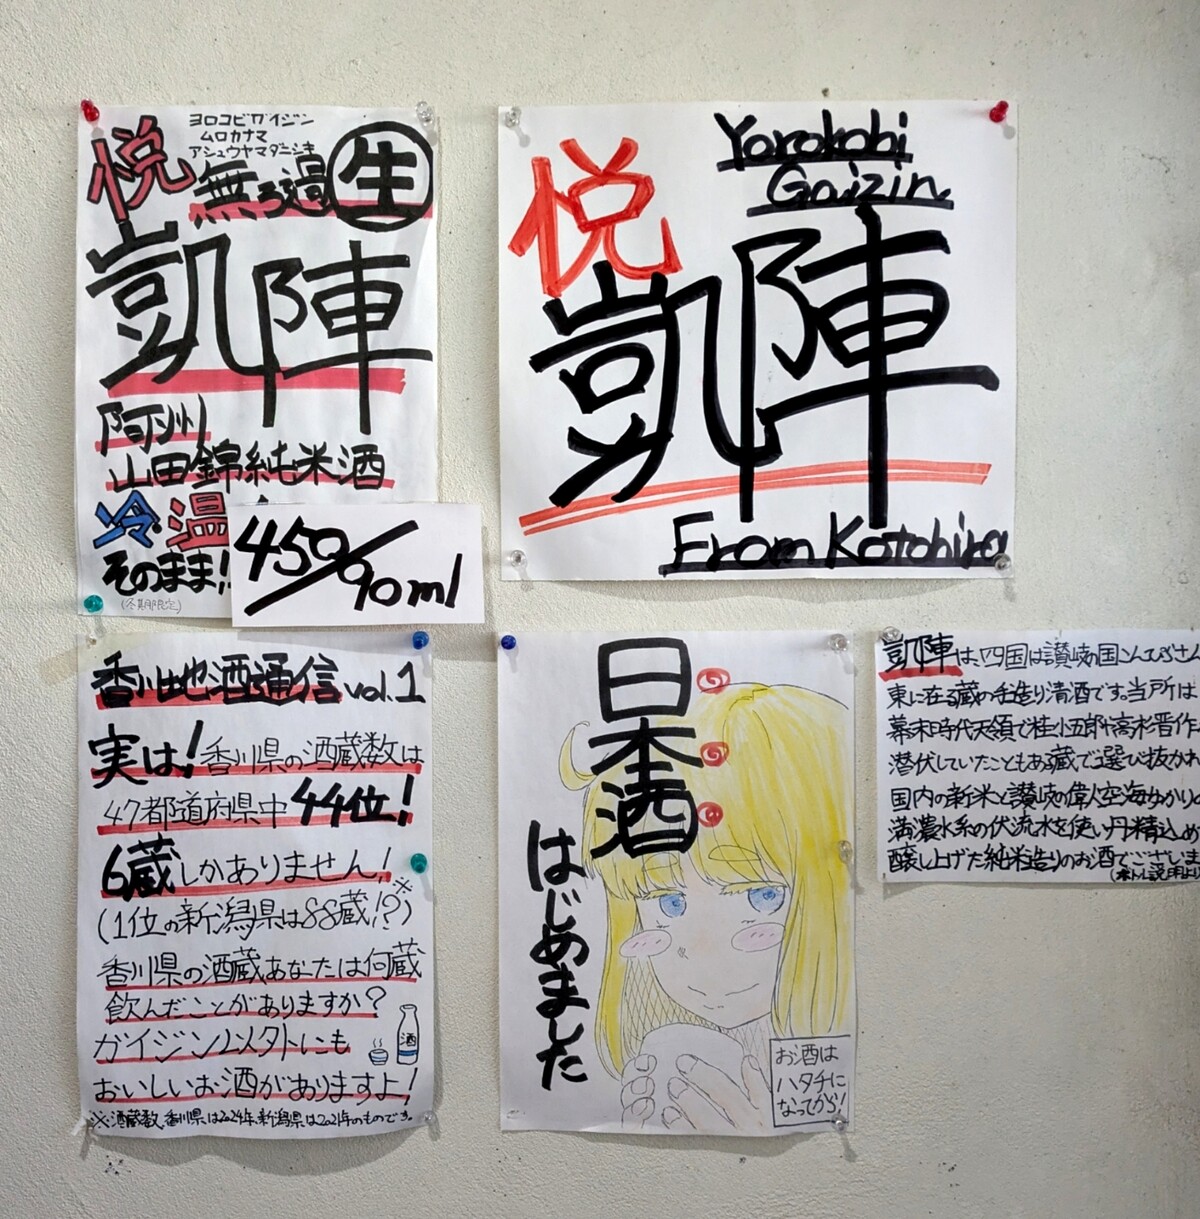 ヨロコビガイジン
ムロカナマ
アシュウヤマダニシキ
悦
無ろ過
生
凱陣
阿州
山田錦純米酒
冷 温
そのまま!
(冬期限定)
450/90ml
悦
Yorokobi
Gaizin
凱陣
From Kotohira
香川地酒通信 vol.1
実は!香川県の酒蔵数は
47都道府県中 44位!
6蔵しかありません!
(1位の新潟県は88蔵!?)※
香川県の酒蔵あなたは何蔵
飲んだことがありますか?
ガイジン以外にも
おいしいお酒がありますよ!
酒
※酒蔵数、香川県は2024年、新潟県は2021年のものです。
日本酒
はじめました
お酒は
ハタチに
なってから!
凱陣は、四国は讃岐の国こんぴらさん
東に在る蔵の手造り清酒です。当所は
幕末時代天領で桂小五郎や高杉晋作
潜伏していたこともある蔵で選び抜かれ
国内の新米と讃岐の偉人空海ゆかりの
満濃水系の伏流水を使い丹精込め
醸し上げた純米造りのお酒でございま
(ボトル説明より